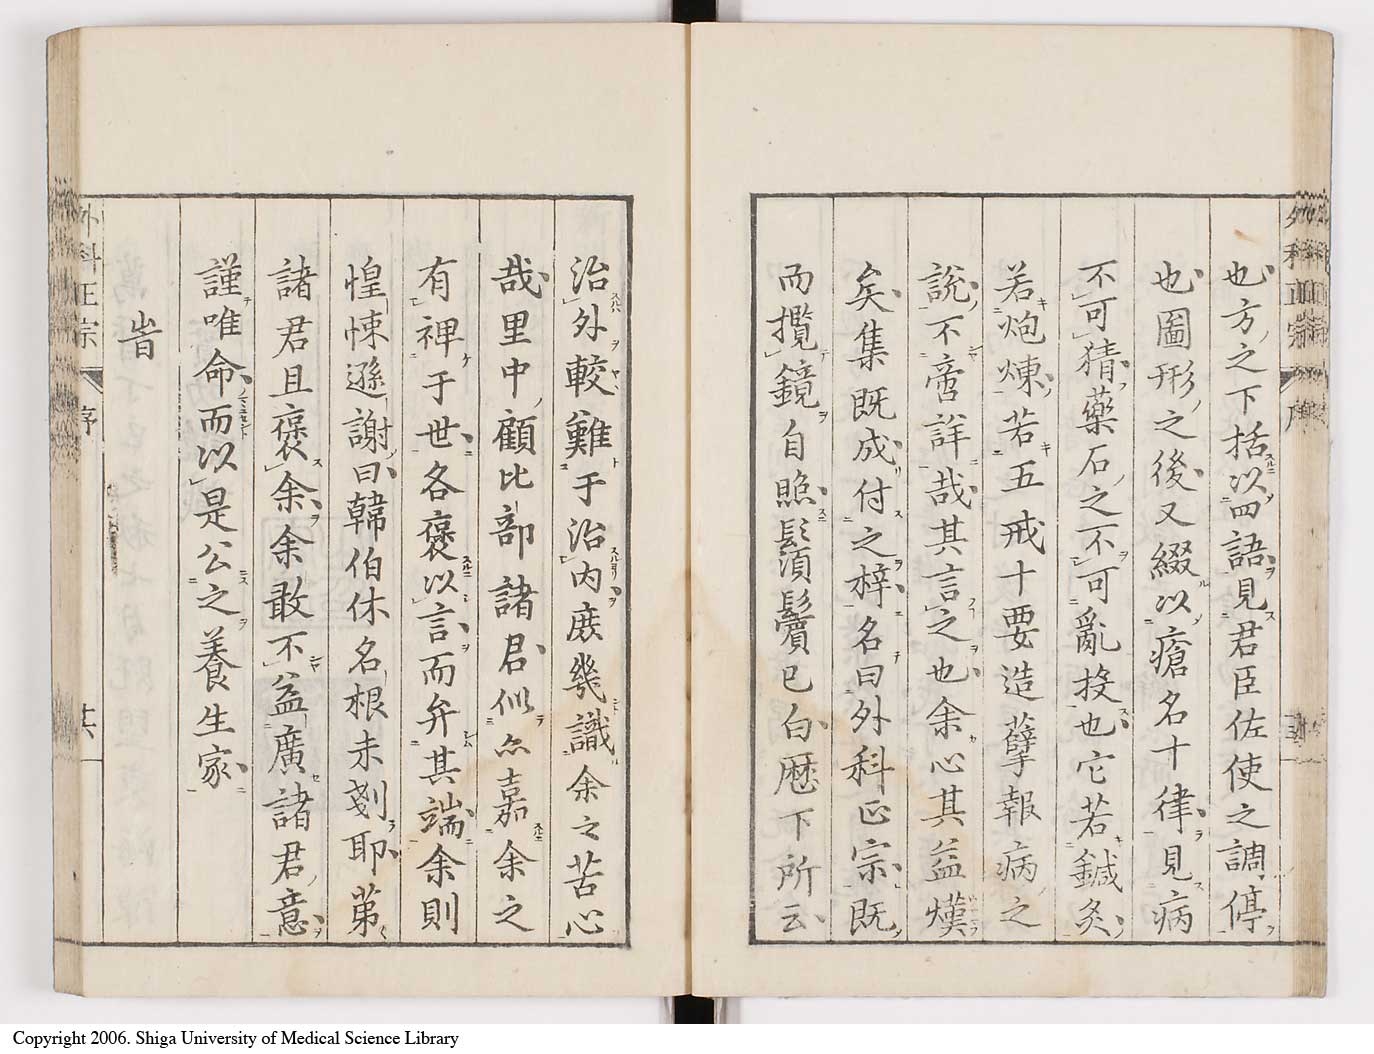 也方之下括以四語見君臣佐使之調停
也圖形之後又綴以瘡名十律見病
不可猜藥石之不可亂投也它若鍼灸
若炮煉若五戒十要造孽報病之
說不啻詳哉其言之也余心其益熯
矣集既成付之梓名曰外科正宗既
而攬鏡自照鬚鬢已白歷下所云
治外較難于治內庻幾識余之苦心
哉里中顧比部諸君似亦嘉余之
有裨于世各褒以言而弁其端余則
惶悚遜謝曰韓伯休名根未剗耶第
諸君且褒余余敢不益廣諸君意
謹唯命而以是公之養生家
旹
外科正宗 序 其一
Copyright 2006. Shiga University of Medical Science Library